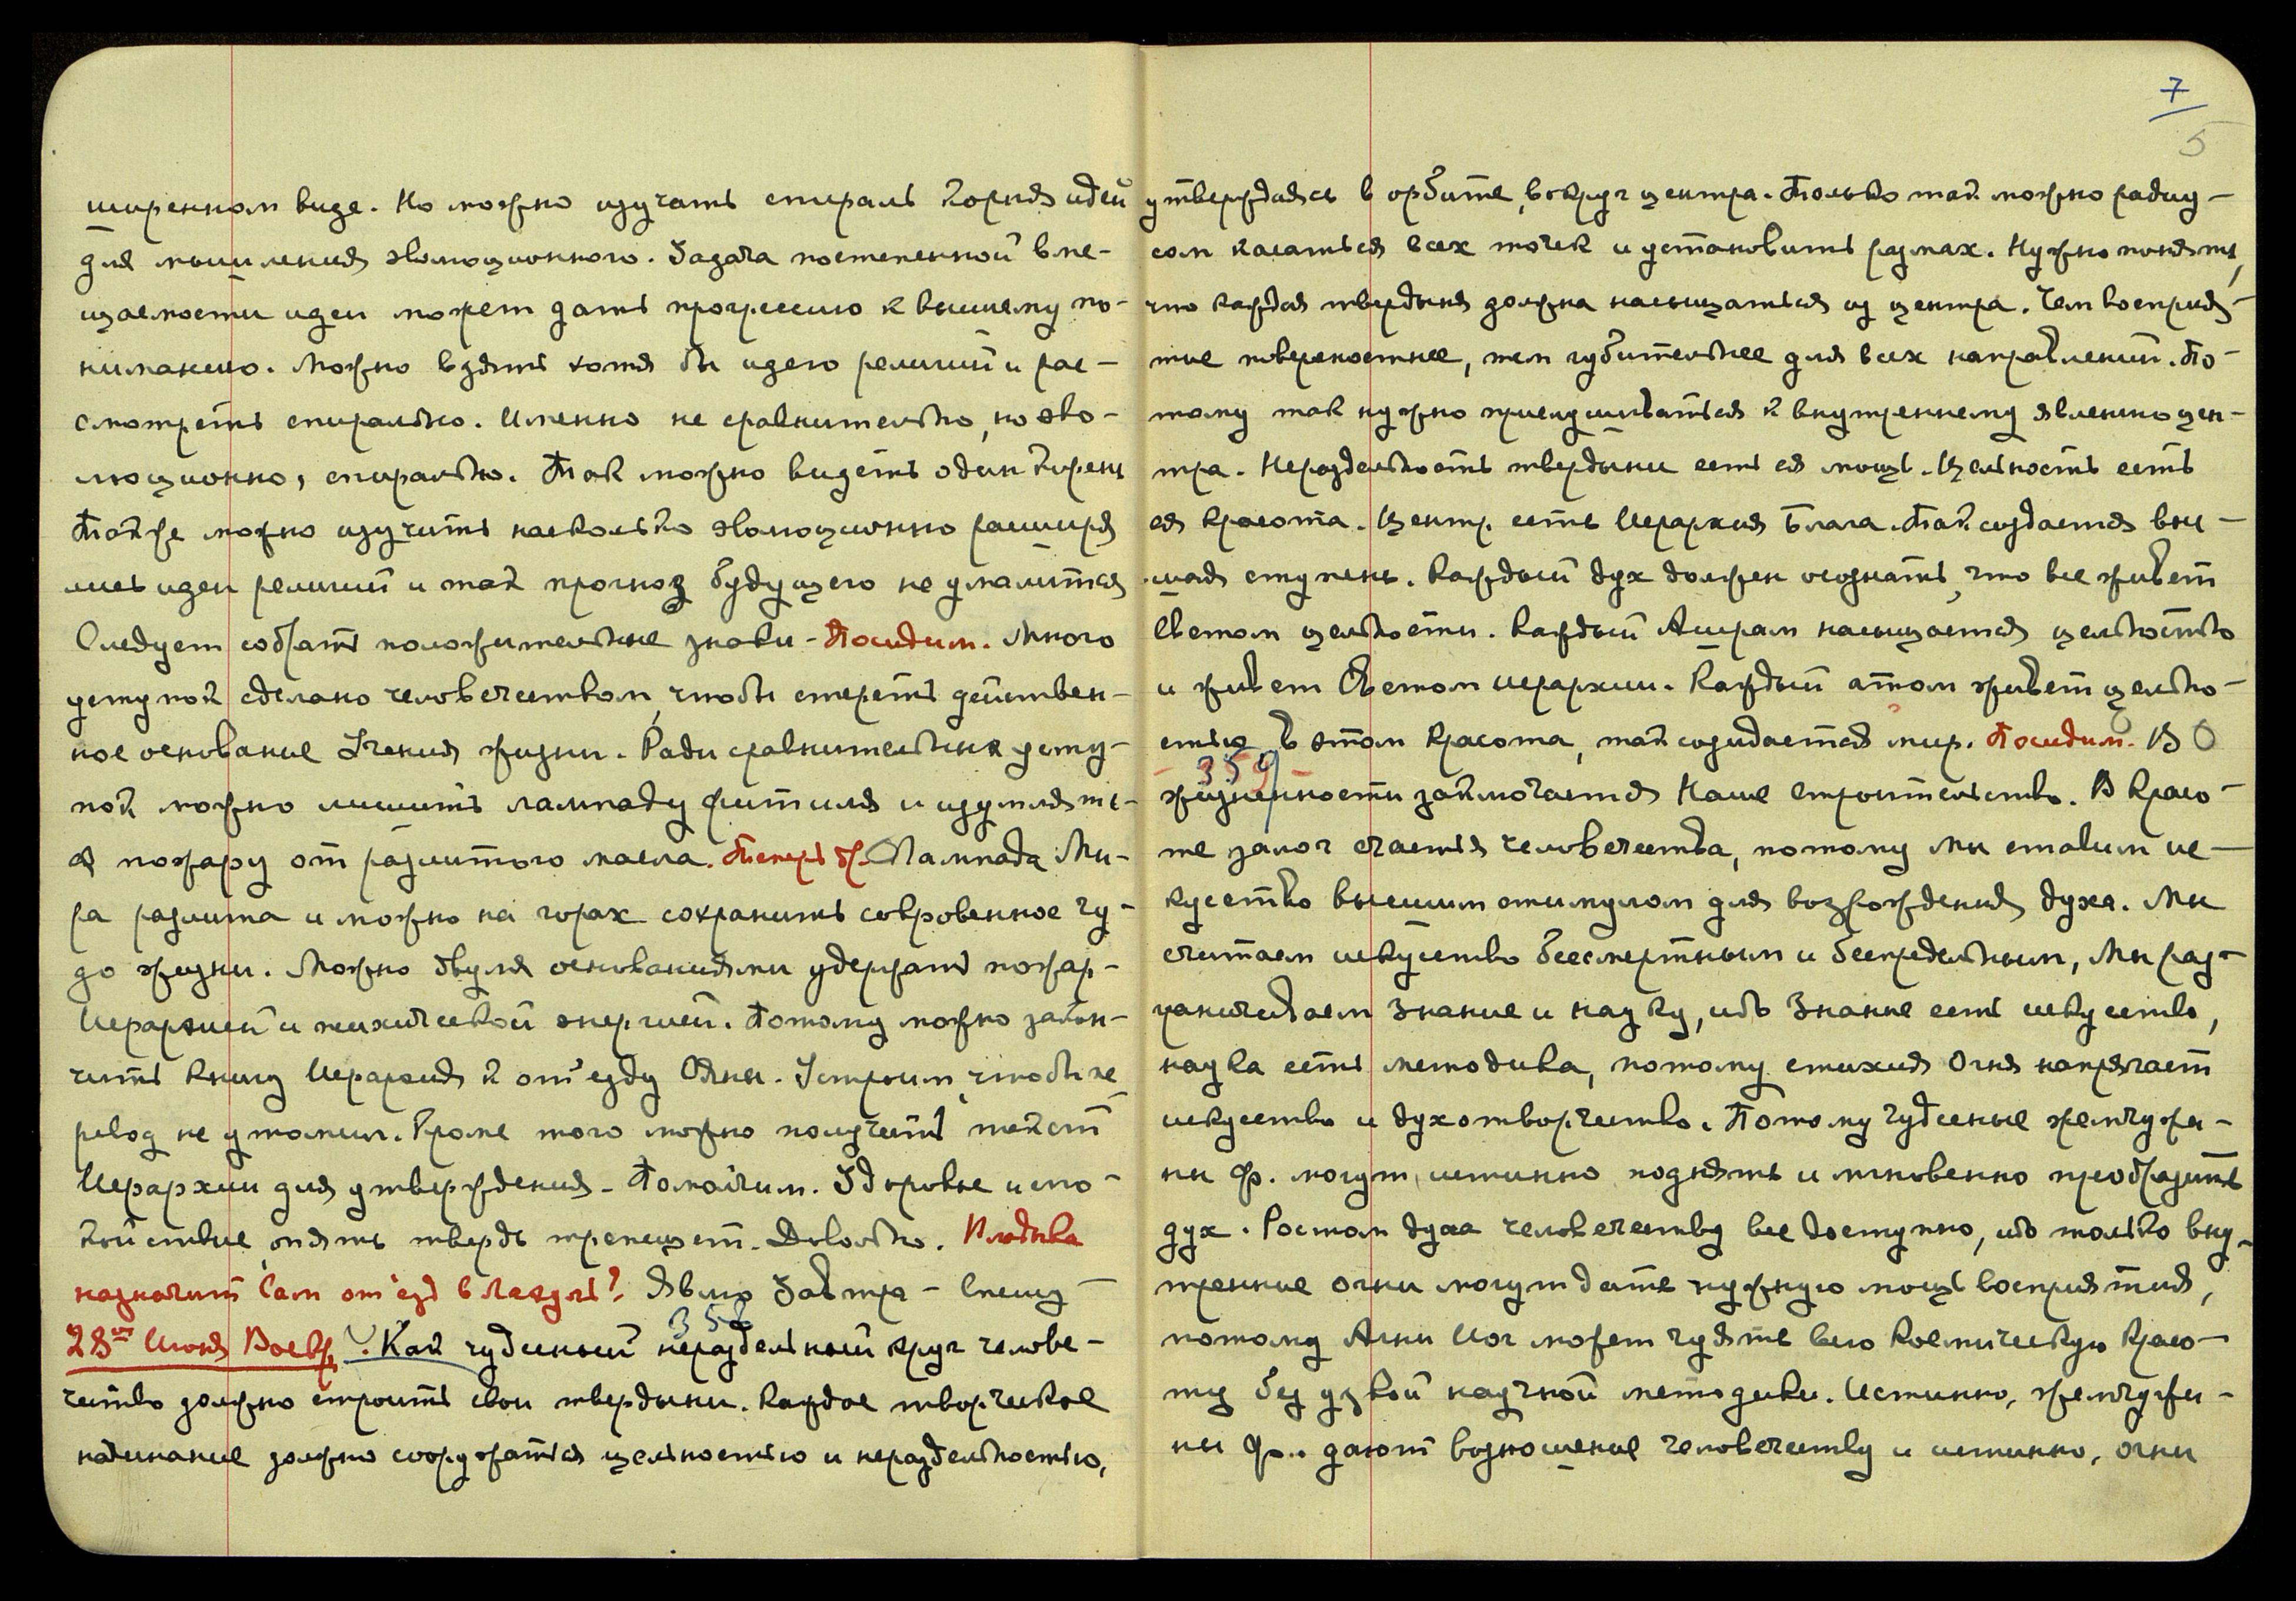 ширенном виде. Но можно изучать спираль корня идей
для мышления эволюционного. Задача постепенной вме-
щаемости идеи может дать прогрессию к высшему по-
ниманию. Можно взять хотя бы идею религий и рас-
смотреть спирально. Именно не сравнительно, но эво-
люционно, спирально. Так можно видеть один корень
Также можно изучить насколько эволюционно расширя
лись идеи религий и так прогноз будущего не умалится
Следует собрать положительные знаки - Посидим. Много
уступок сделано человечеством, чтобы стереть действен-
ное основание Учения жизни. Ради сравнительных усту-
пок можно лишить лампаду фитиля и изумлять-
ся пожару от разлитого масла. Теперь Лампада Ми-
ра разлита и можно на горах сохранить сокровенное чу-
до жизни. Можно двумя основаниями удержать пожар -
Иерархией и психической энергией. Потому можно закон-
чить книгу Иерархия к отъезду Ояны. Устроим, чтобы пе
ревод не утомил. Кроме того можно получить текст
Иерархии для утверждения - Помолчим. Здоровье и спо-
койствие, опять твердь трепещет. Довольно. Владыка
назначит Сам отъезд в Лахуль? Явлю Завтра - спешу
358
28го Июня Воскр. Как чудесный нераздельный круг челове-
чество должно строить свои твердыни. Каждое творческое
начинание должно сооружаться цельностью и нераздельностью,
7
5
утверждаясь в орбите, вокруг центра. Только так можно радиу-
сом касаться всех точек и установить размах. Нужно понять,
что каждая твердыня должна насыщаться из центра. Чем восприя-
тие поверхностнее, тем губительнее для всех направлений. По-
тому так нужно прислушиваться к внутреннему явлению цен-
тра. Нераздельность твердыни есть ея мощь. Цельность есть
ея красота. Центр есть Иерархия Блага. Так создается выс-
шая ступень. Каждый дух должен осознать, что все живет
Светом цельности. Каждый Ашрам насыщается цельностью
и живет Светом иерархии. Каждый атом живет цельно-
стью, в этом красота, так созидается мир. Посидим. В О
359
жизненности заключается Наше строительство. В красо-
те залог счастья человечества, потому Мы ставим ис-
кусство высшим стимулом для возрождения духа. Мы
считаем искусство бессмертным и беспредельным, Мы раз-
граничиваем Знание и науку, ибо Знание есть искусство,
наука есть методика, потому стихия Огня напрягает
искусство и духотворчество. Потому чудесные жемчужи-
ны Ф. могут, истинно поднять и мгновенно преобразить
дух. Ростом духа человечеству все доступно, ибо только вну-
тренние огни могут дать нужную мощь восприятия,
потому Агни Йог может чуять всю Космическую красо-
ту без узкой научной методики. Истинно, жемчужи-
ны Ф.. дают возношение человечеству и истинно, огни